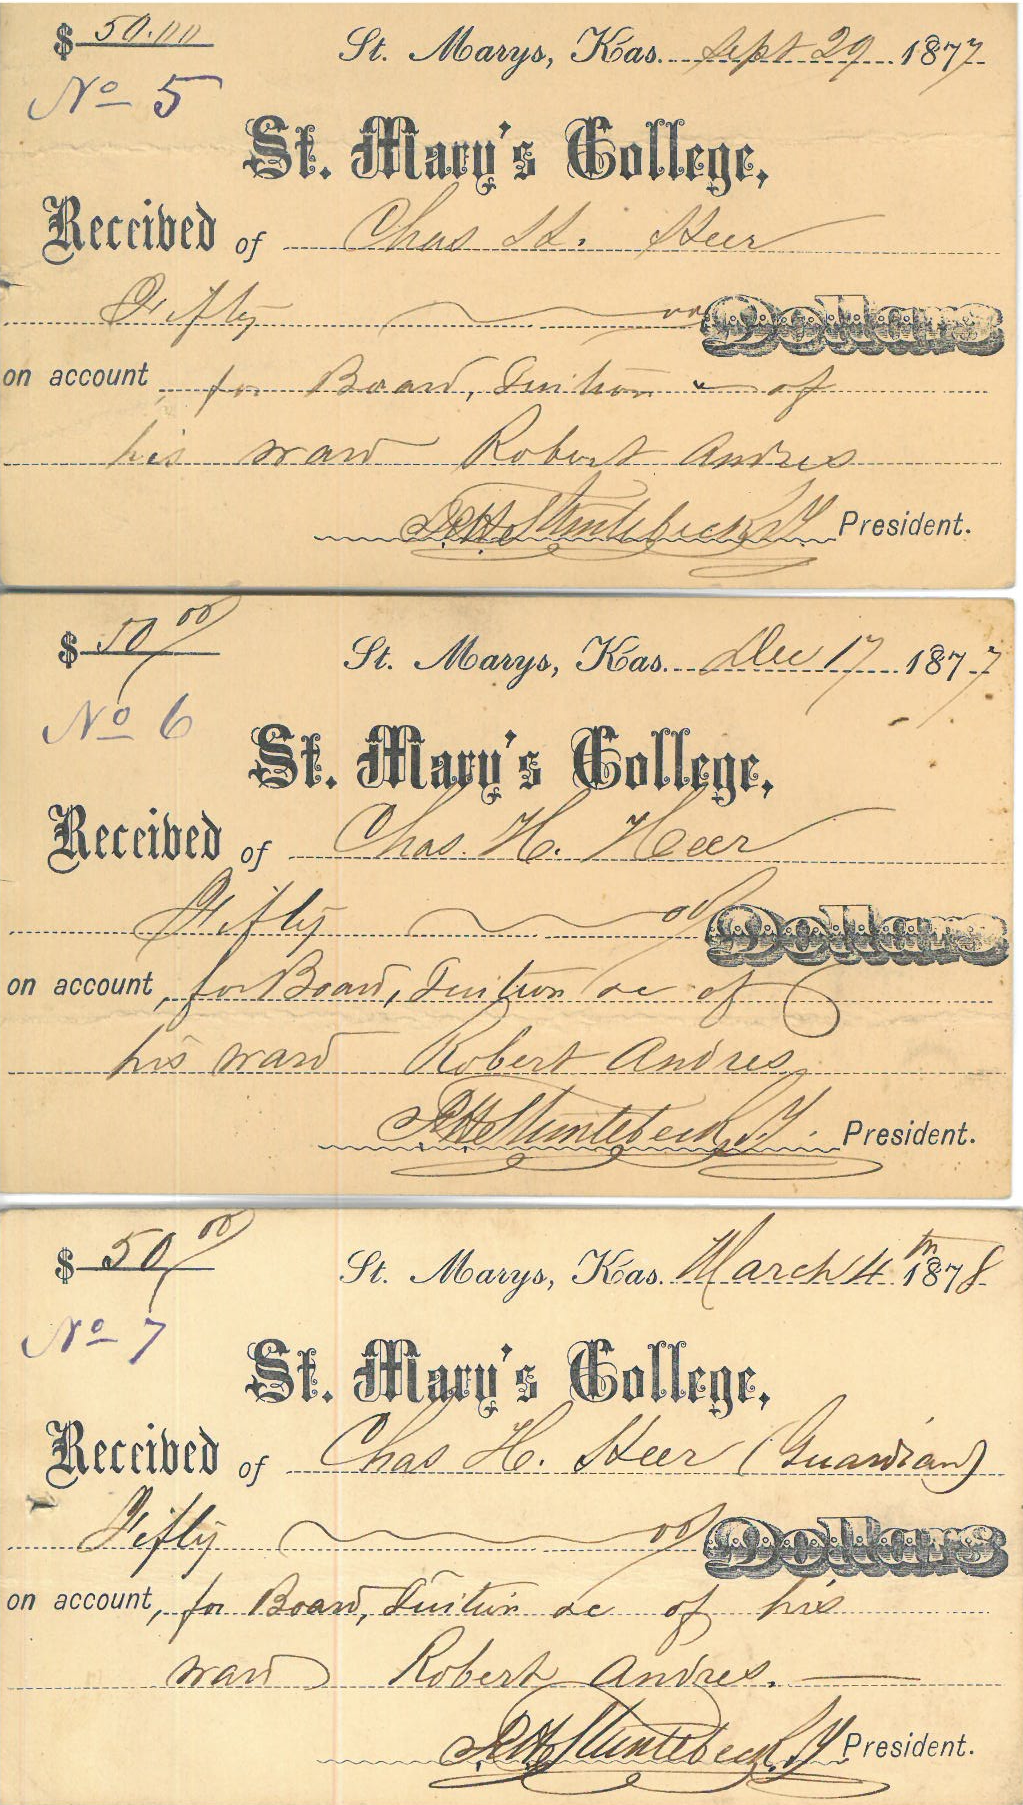 $ 50.00 St. Marys, Kas. Sept 29 1877
No 5
St. Mary's College,
Received of Chas H. Heer
Fifty 00 Dollars
on account, for Board, Tuition of
his ward Robert Andres
Stuntebeck S.J. President.
$ 50 00 St. Marys, Kas. Dec 17 1877
No 6
St. Mary's College,
Received of Chas. H. Heer
Fifty 00 Dollars
on account, for Board, Tuition &c of
his ward Robert Andres
F.H. Stuntebeck S.J. President.
$ 50 00 St. Marys, Kas. March 4th 1878
No 7
St. Mary's College,
Received of Chas H. Heer (Guardian)
Fifty 00 Dollars
on account, for Board, Tuition &c of his
ward Robert Andres.
F.H. Stuntebeck S.J. President.